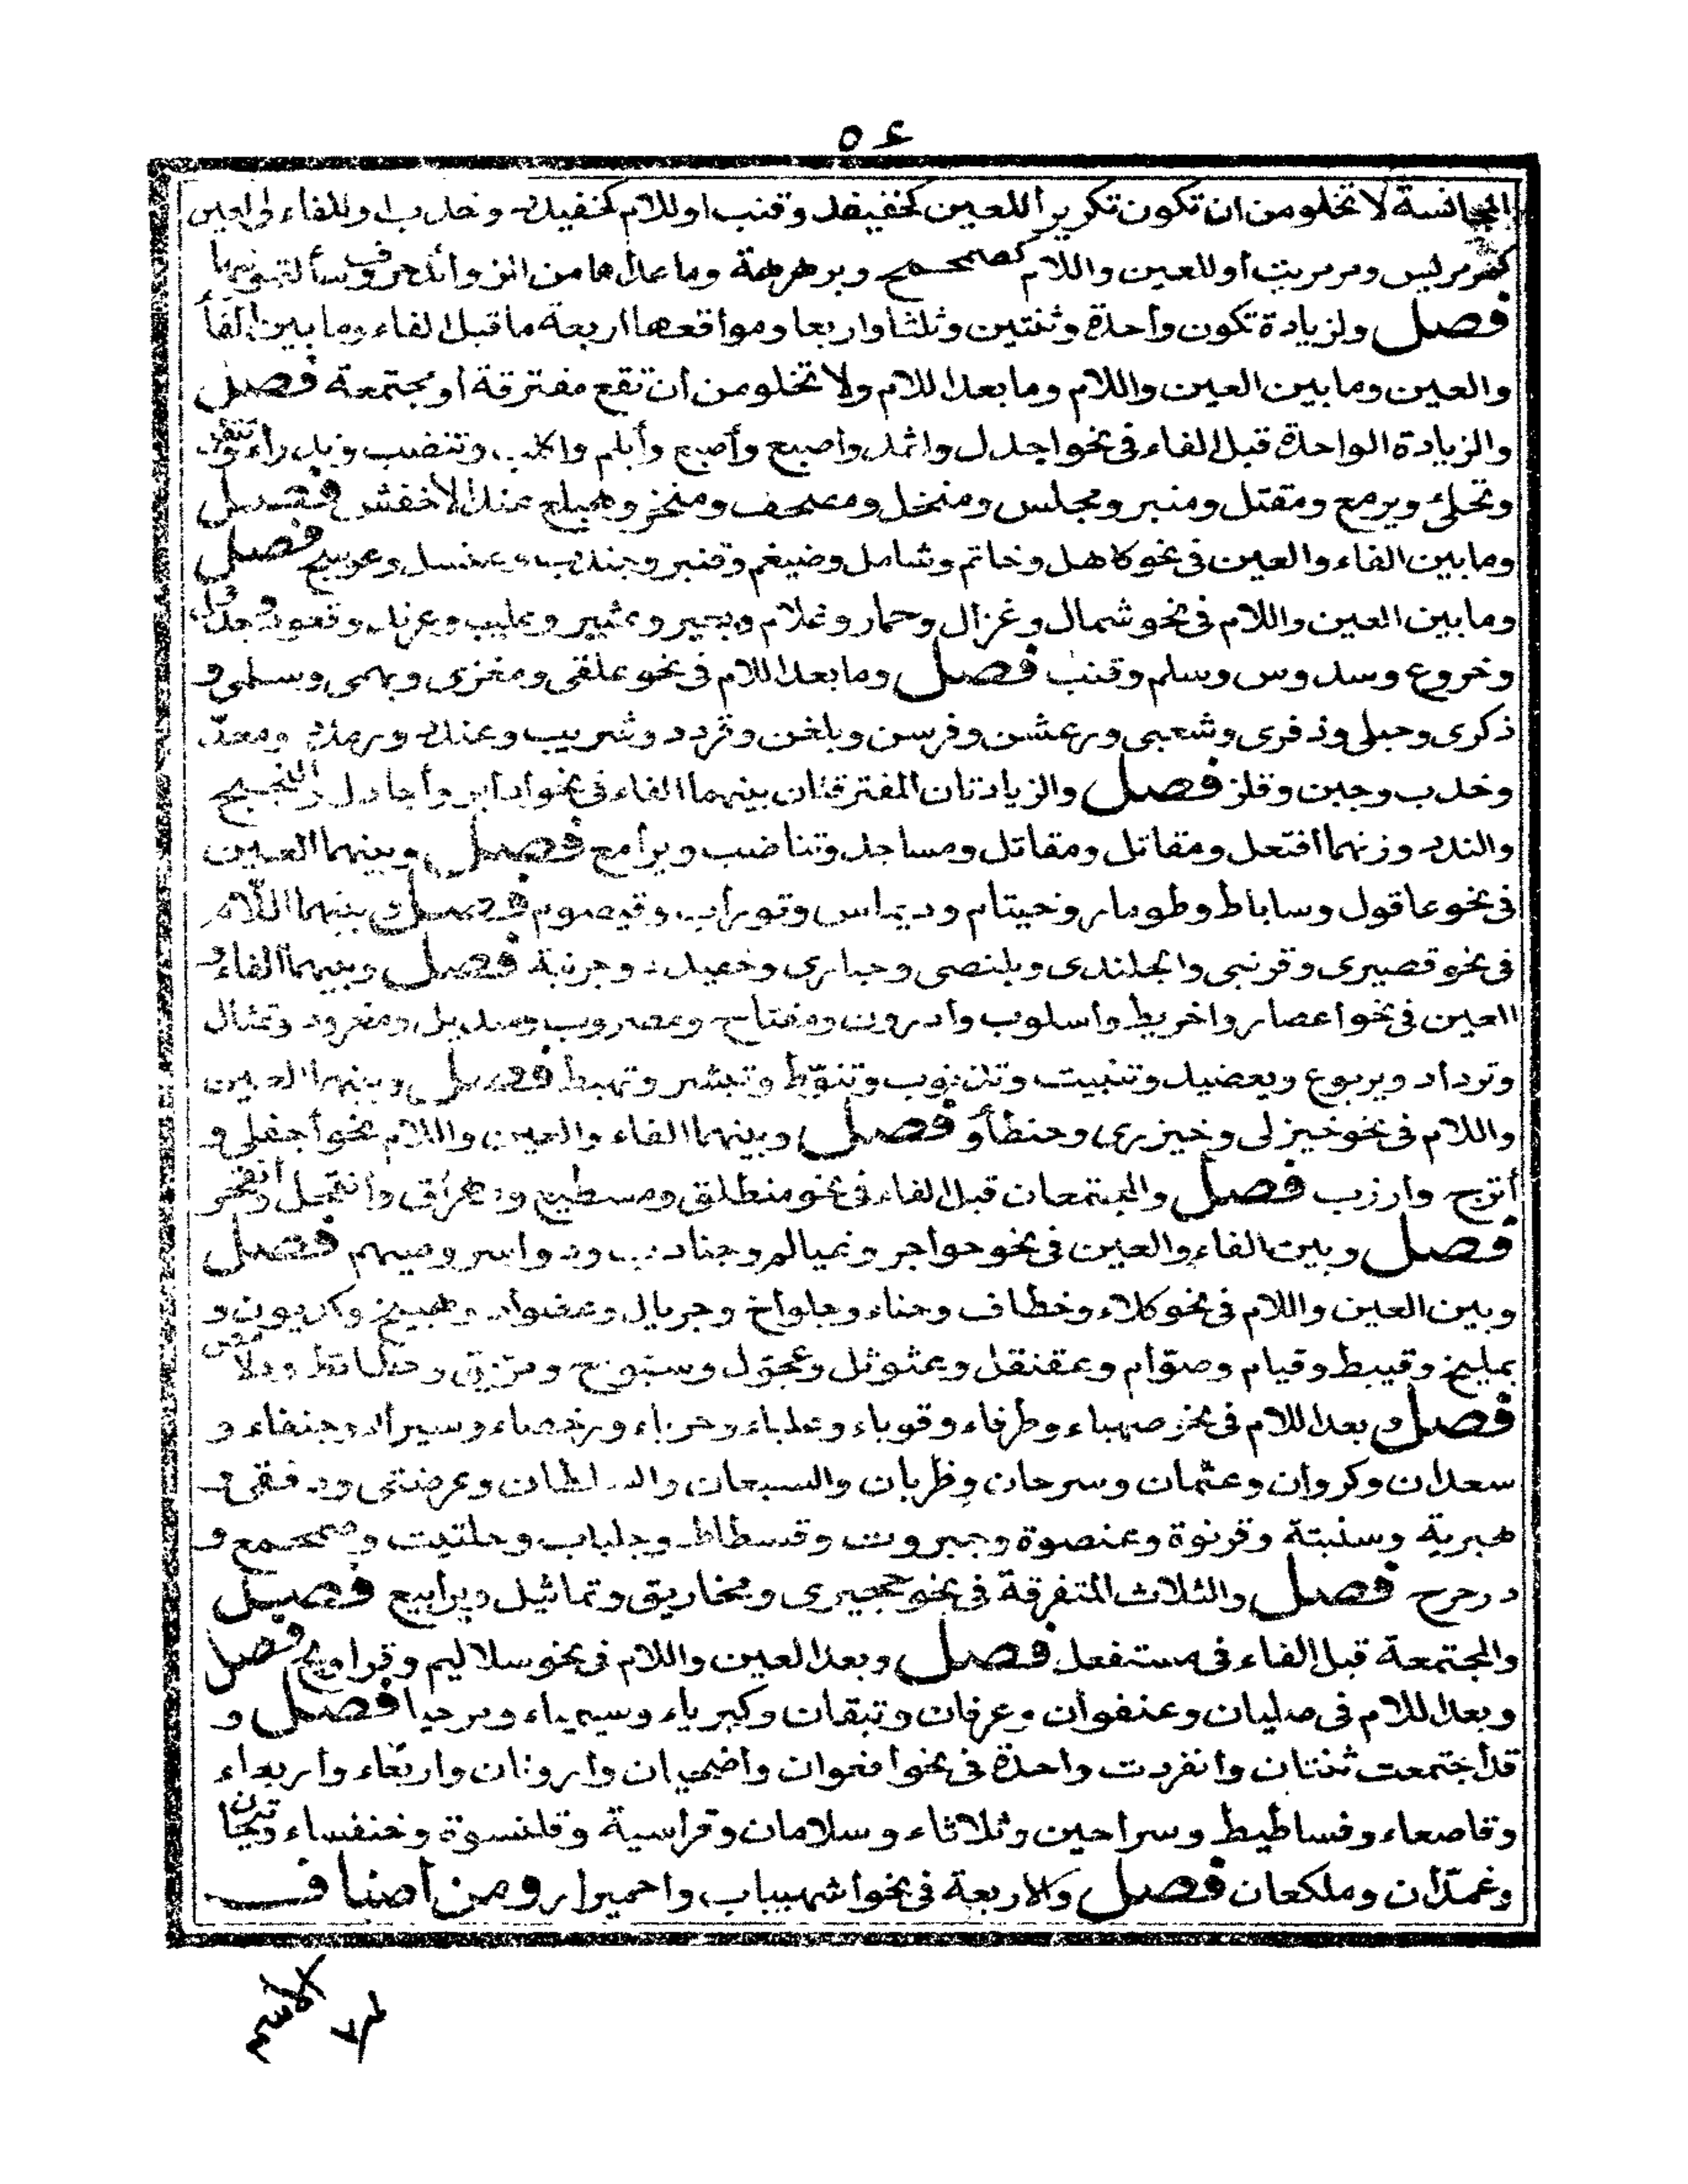 ٥٤
المجانسة لا تخلو من ان تكون تكريرا للعين كخفيفد وقنب او للام كخفيدد وخدب او للفاء والعين
كمرمريس ومرمريت أو للعين واللام كصمحمح وبرهرهة وما عداها من الزوائد حروف سألتمونيها
فصل والزيادة تكون واحدة وثنتين وثلثا واربعا ومواقعها اربعة ما قبل الفاء وما بين الفأ
والعين وما بين العين واللام وما بعد اللام ولا تخلو من ان تقع مفترقة أو مجتمعة فصل
والزيادة الواحدة قبل الفاء فى نحو اجدل واثمد واصبع وأصبع وأبلم واكلب وتنضب وتدرأ وتتفل
وتحلئ ويرمع ومقتل ومنبر ومجلس ومنخل ومصحف ومنخر وهبلع عند الاخفش فصل
وما بين الفاء والعين فى نحو كاهل وخاتم وشامل وضيغم وقنبر وجندب وعنسل وعوسج فصل
وما بين العين واللام فى نحو شمال وغزال وحمار وغلام وبعير وعثير وعليب وعرند وقعود وجدول
وخروع وسدوس وسلم وقنب فصل وما بعد اللام فى نحو علقى ومعزى وبهمى وسلمى و
ذكرى وحبلى وذفرى وشعبى ورعشن وفرسن وبلغن وقردد وشربب وعندد ورمدد ومعدّ
وخدب وجبن وفلز فصل والزيادتان المفترقتان بينهما الفاء فى نحو ادابر وأجادل والنجج
والندد وزنهما افنعل ومقاتل ومقاتل ومساجد وتناضب ويرامع فصل وبينهما العين
فى نحو عاقول وساباط وطومار وخيتام وديماس وتوراب وقيصوم فصل وبينهما اللام
فى نحو قصيرى وقرنبى والجلندى وبلنصى وحبارى وخفيدد وجرنبة فصل وبينهما الفاء و
العين فى نحو اعصار واخريط واسلوب وادرون ومفتاح ومضروب ومنديل ومغرود وتمثال
وترداد ويربوع ويعضيد وتنبيت وتذنوب وتنوّط وتبشر وتهبط فصل وبينهما العين
واللام فى نحو خيزلى وخيزرى وحنطأو فصل وبينهما الفاء والعين واللام نحو أجفلى و
أترج وارزب فصل والمجتمعتان قبل الفاء فى نحو منطلق ومسطيع ومهراق وانقحل وانقحر
فصل وبين الفاء والعين فى نحو حواجر وغيالم وجنادب ودواسر وصيهم فصل
وبين العين واللام فى نحو كلاء وخطاف وحناء وجلواخ وجريال وعصواد وهبيخ وكديون و
بطيخ وقبيط وقيام وصوّام وعقنقل وعثوثل وعجوّل وسبوح ومريق وحطائط ودلامص
فصل وبعد اللام فى نحو صهباء وطرفاء وقوباء وعلباء وحرباء ورخصاء وسيراء وجنفاء و
سعدان وكروان وعثمان وسرحان وظربان والسبعان والسلطان وعرضنى ودفقى و
هبرية وسنبتة وقرنوة وعنصوة وجبروت وفسطاط وجلباب وحلتيت وصمحمح و
درحرح فصل والثلاث المتفرقة فى نحو هجيرى ومخاريق وتماثيل ويرابيع فصل
والمجتمعة قبل الفاء فى مستفعل فصل وبعد العين واللام فى نحو سلاليم وقراويح فصل
وبعد اللام فى صليان وعنفوان وعرفان وتئفان وكبرياء وسيمياء ومرحيا فصل و
قد أجتمعت ثنتان وانفردت واحدة فى نحو افعوان واضحيان وارونان واربعاء واربعاء
وقاصعاء وفساطيط وسراحين وثلاثاء وسلامان وقراسية وقلنسوة وخنفساء وتيحان
وعمدّان وملكعان فصل والاربعة فى نحو اشهيباب واحميرار ومن أصناف
الاسم